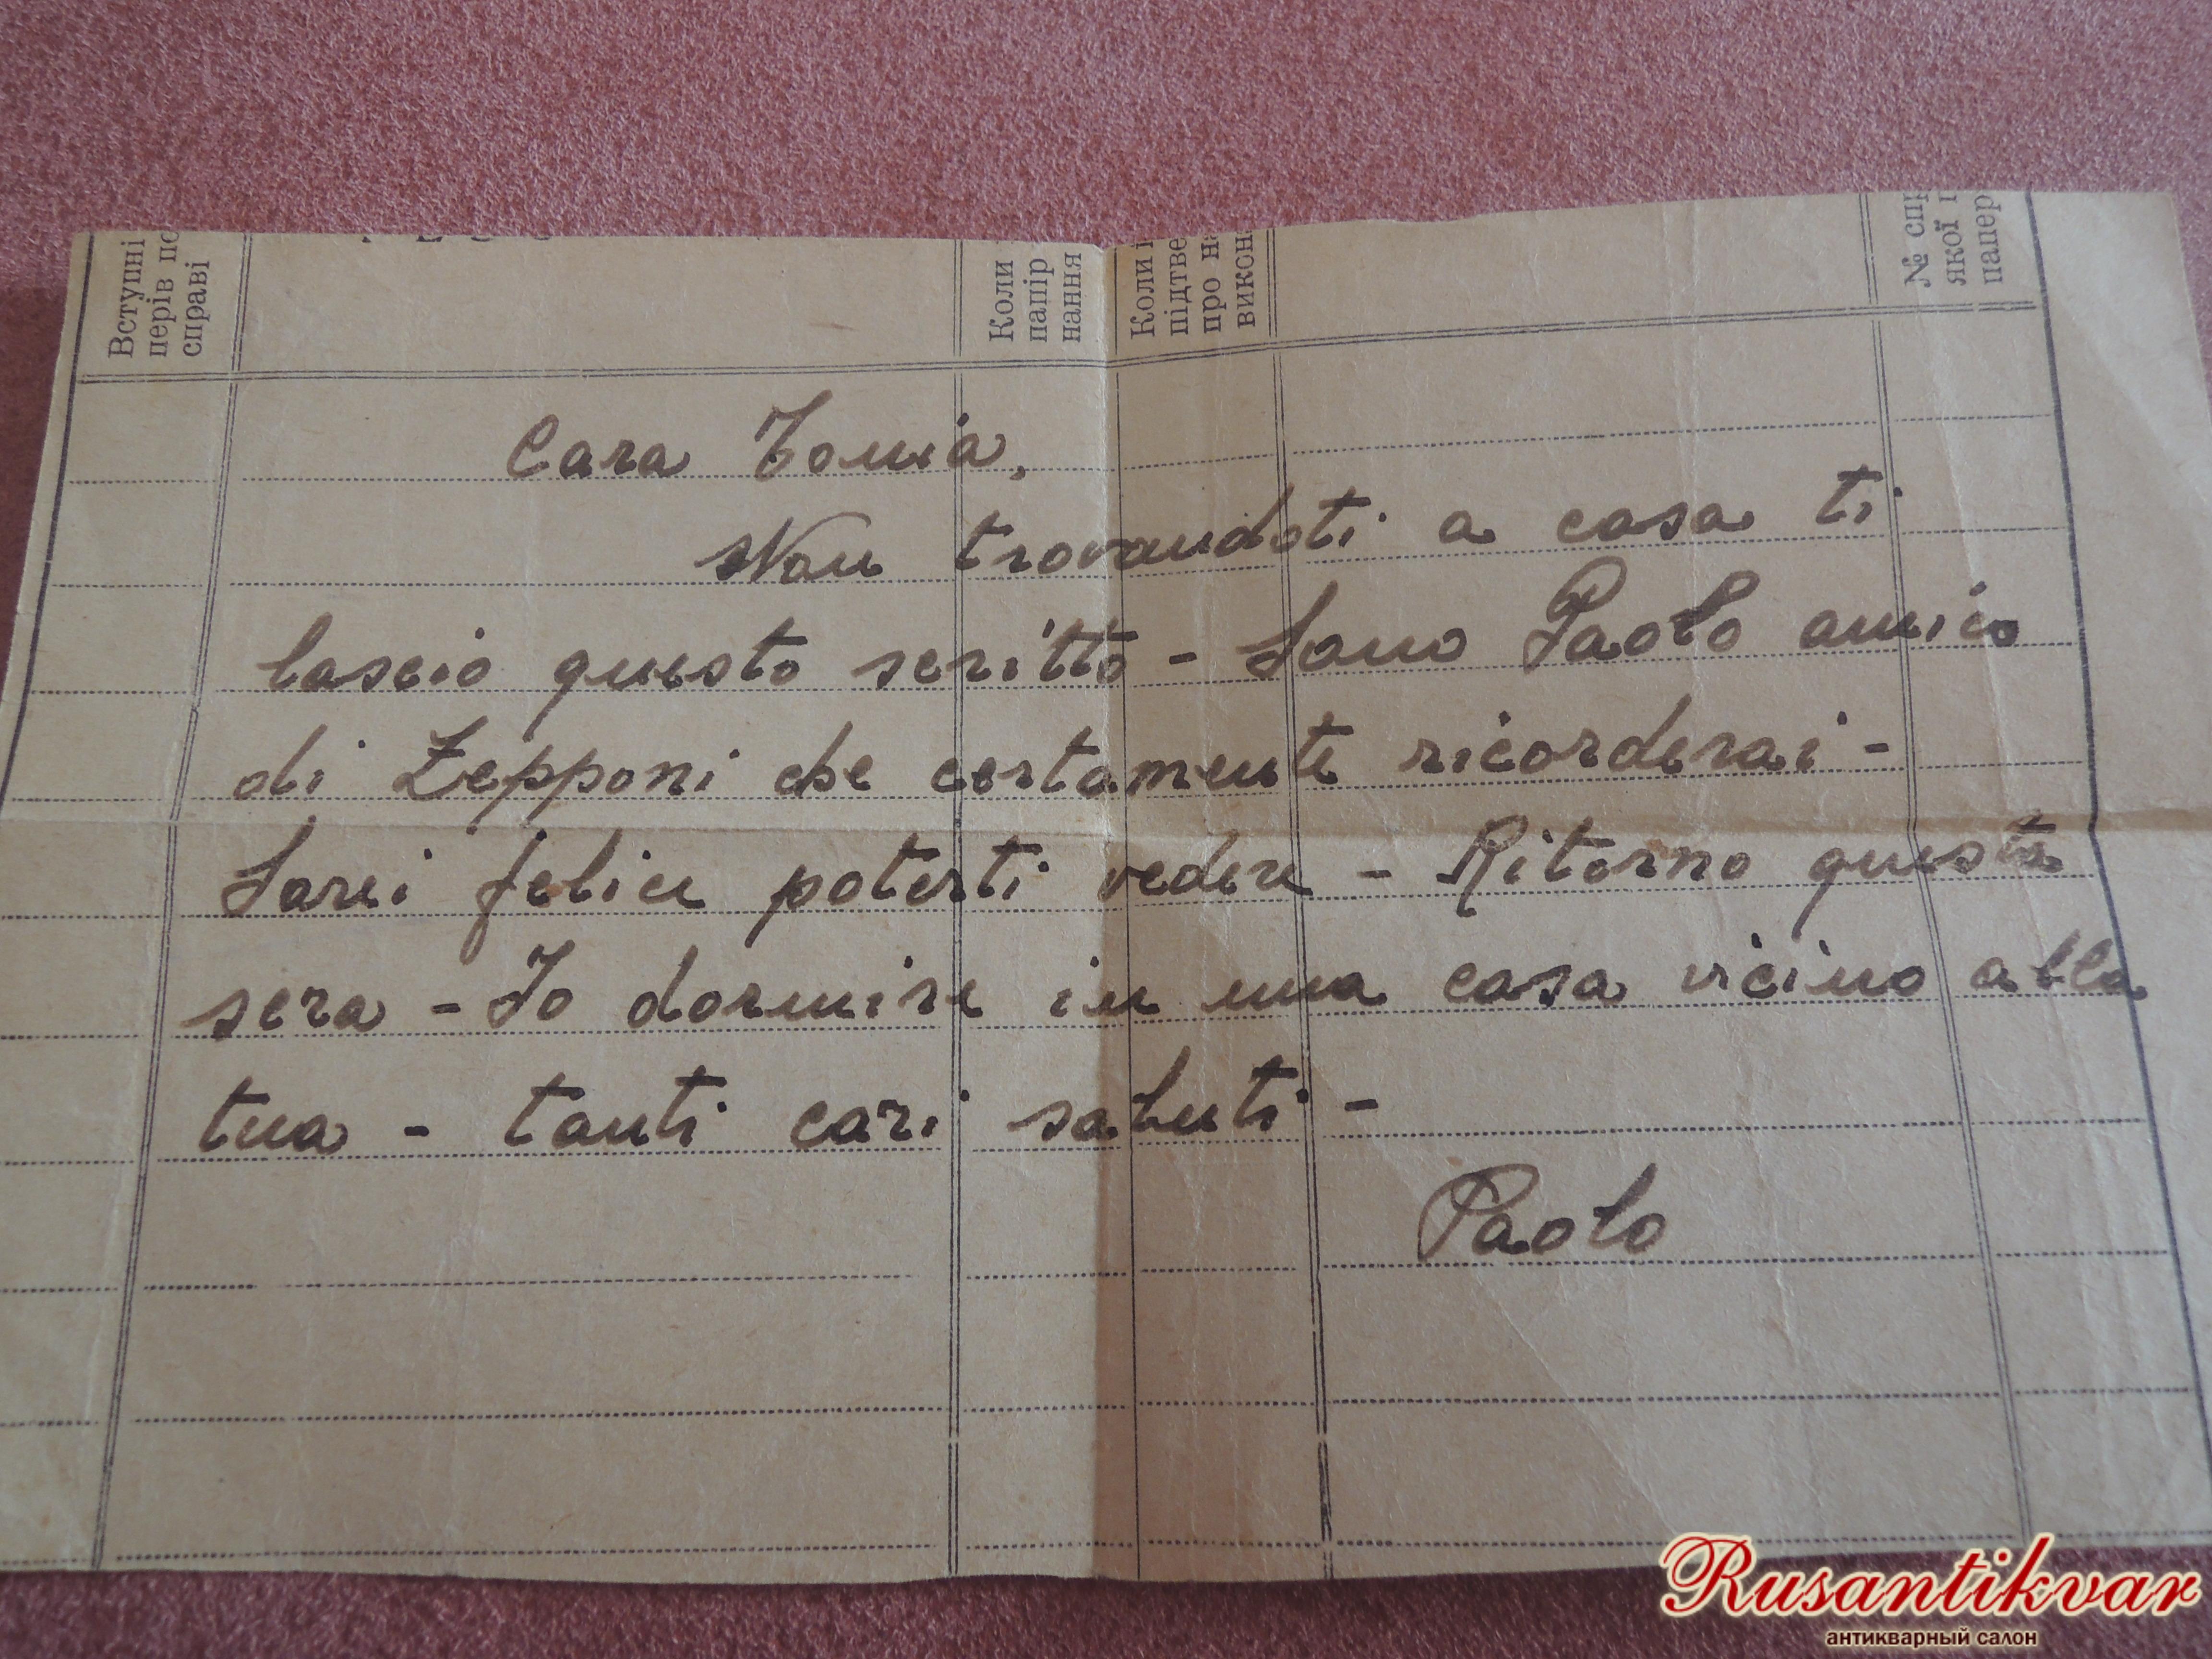 Вступні
перів по
справі
Коли
папір
нання
Коли і
підтве
про на
викон
№ спр
якої п
папер
Cara Tonia,
Non trovandoti a casa ti
lascio questo scritto - Sono Paolo amico
di Zepponi che certamente ricorderai -
Sarei felice poterti vedere - Ritorno questa
sera - Io dormire in una casa vicino alla
tua - tanti cari saluti -
Paolo
Rusantikvar
антикварный салон